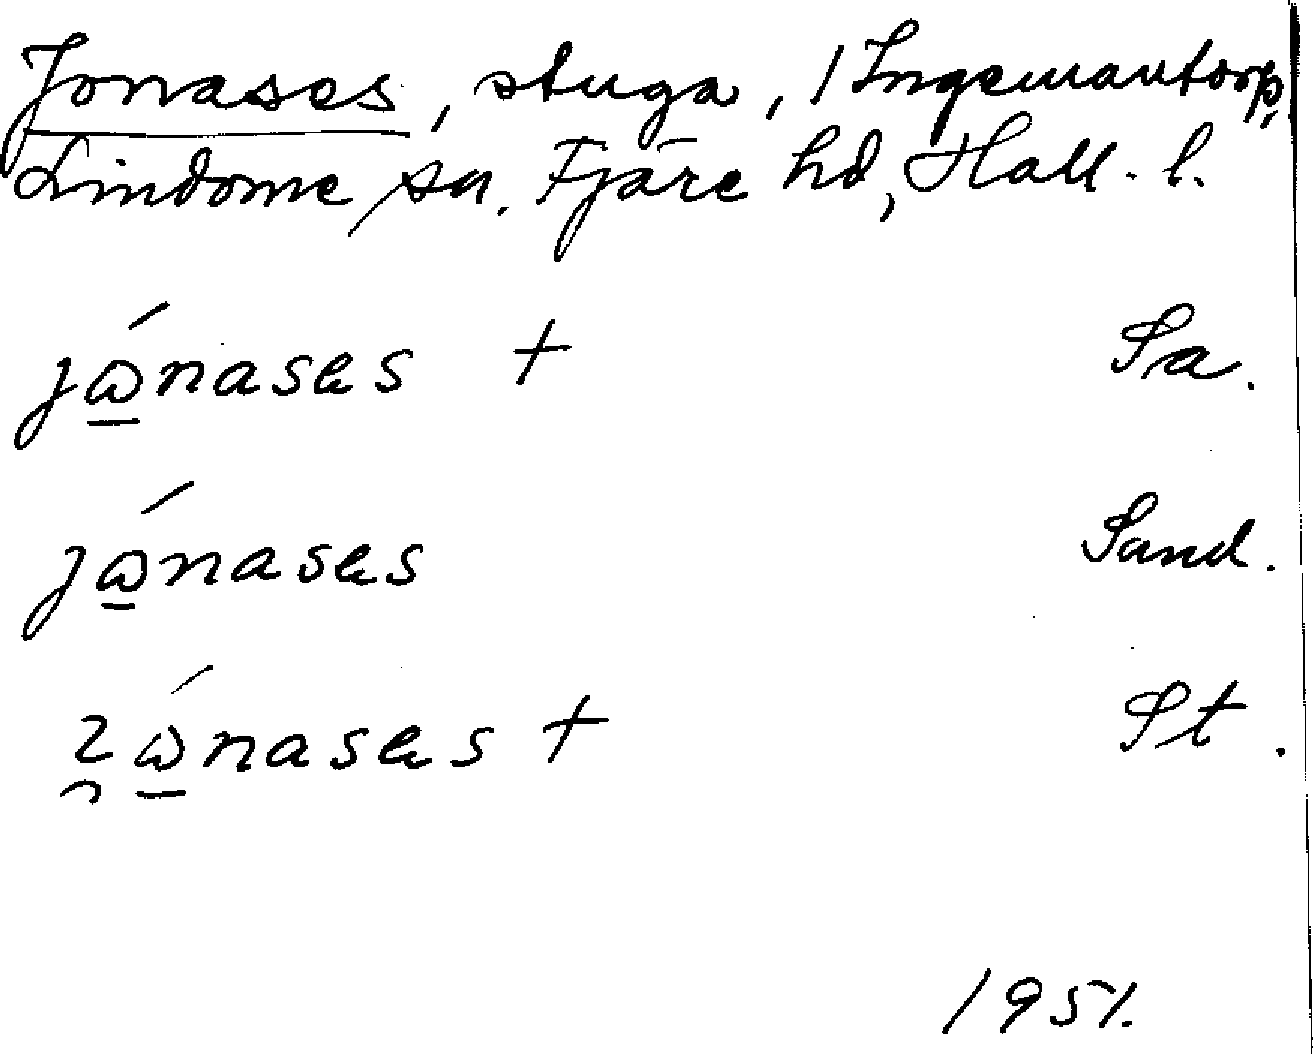 Jonases, stuga, 1 Ingemantorp,
Lindome sn. Fjäre hd, Hall. l.
jώ̲nasɵs + Sa.
jώ̲nasɵs Sand.
ώ̲nasɵs + St.
1951.